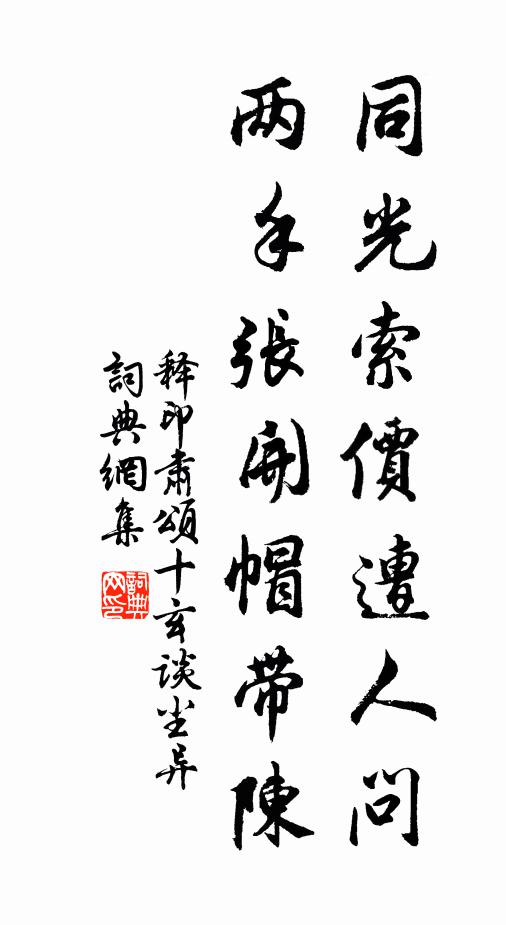 同光索價遭人問
两手張開帽帶陳
释印肅頌十玄談坐异
詞典網集
詞典网印